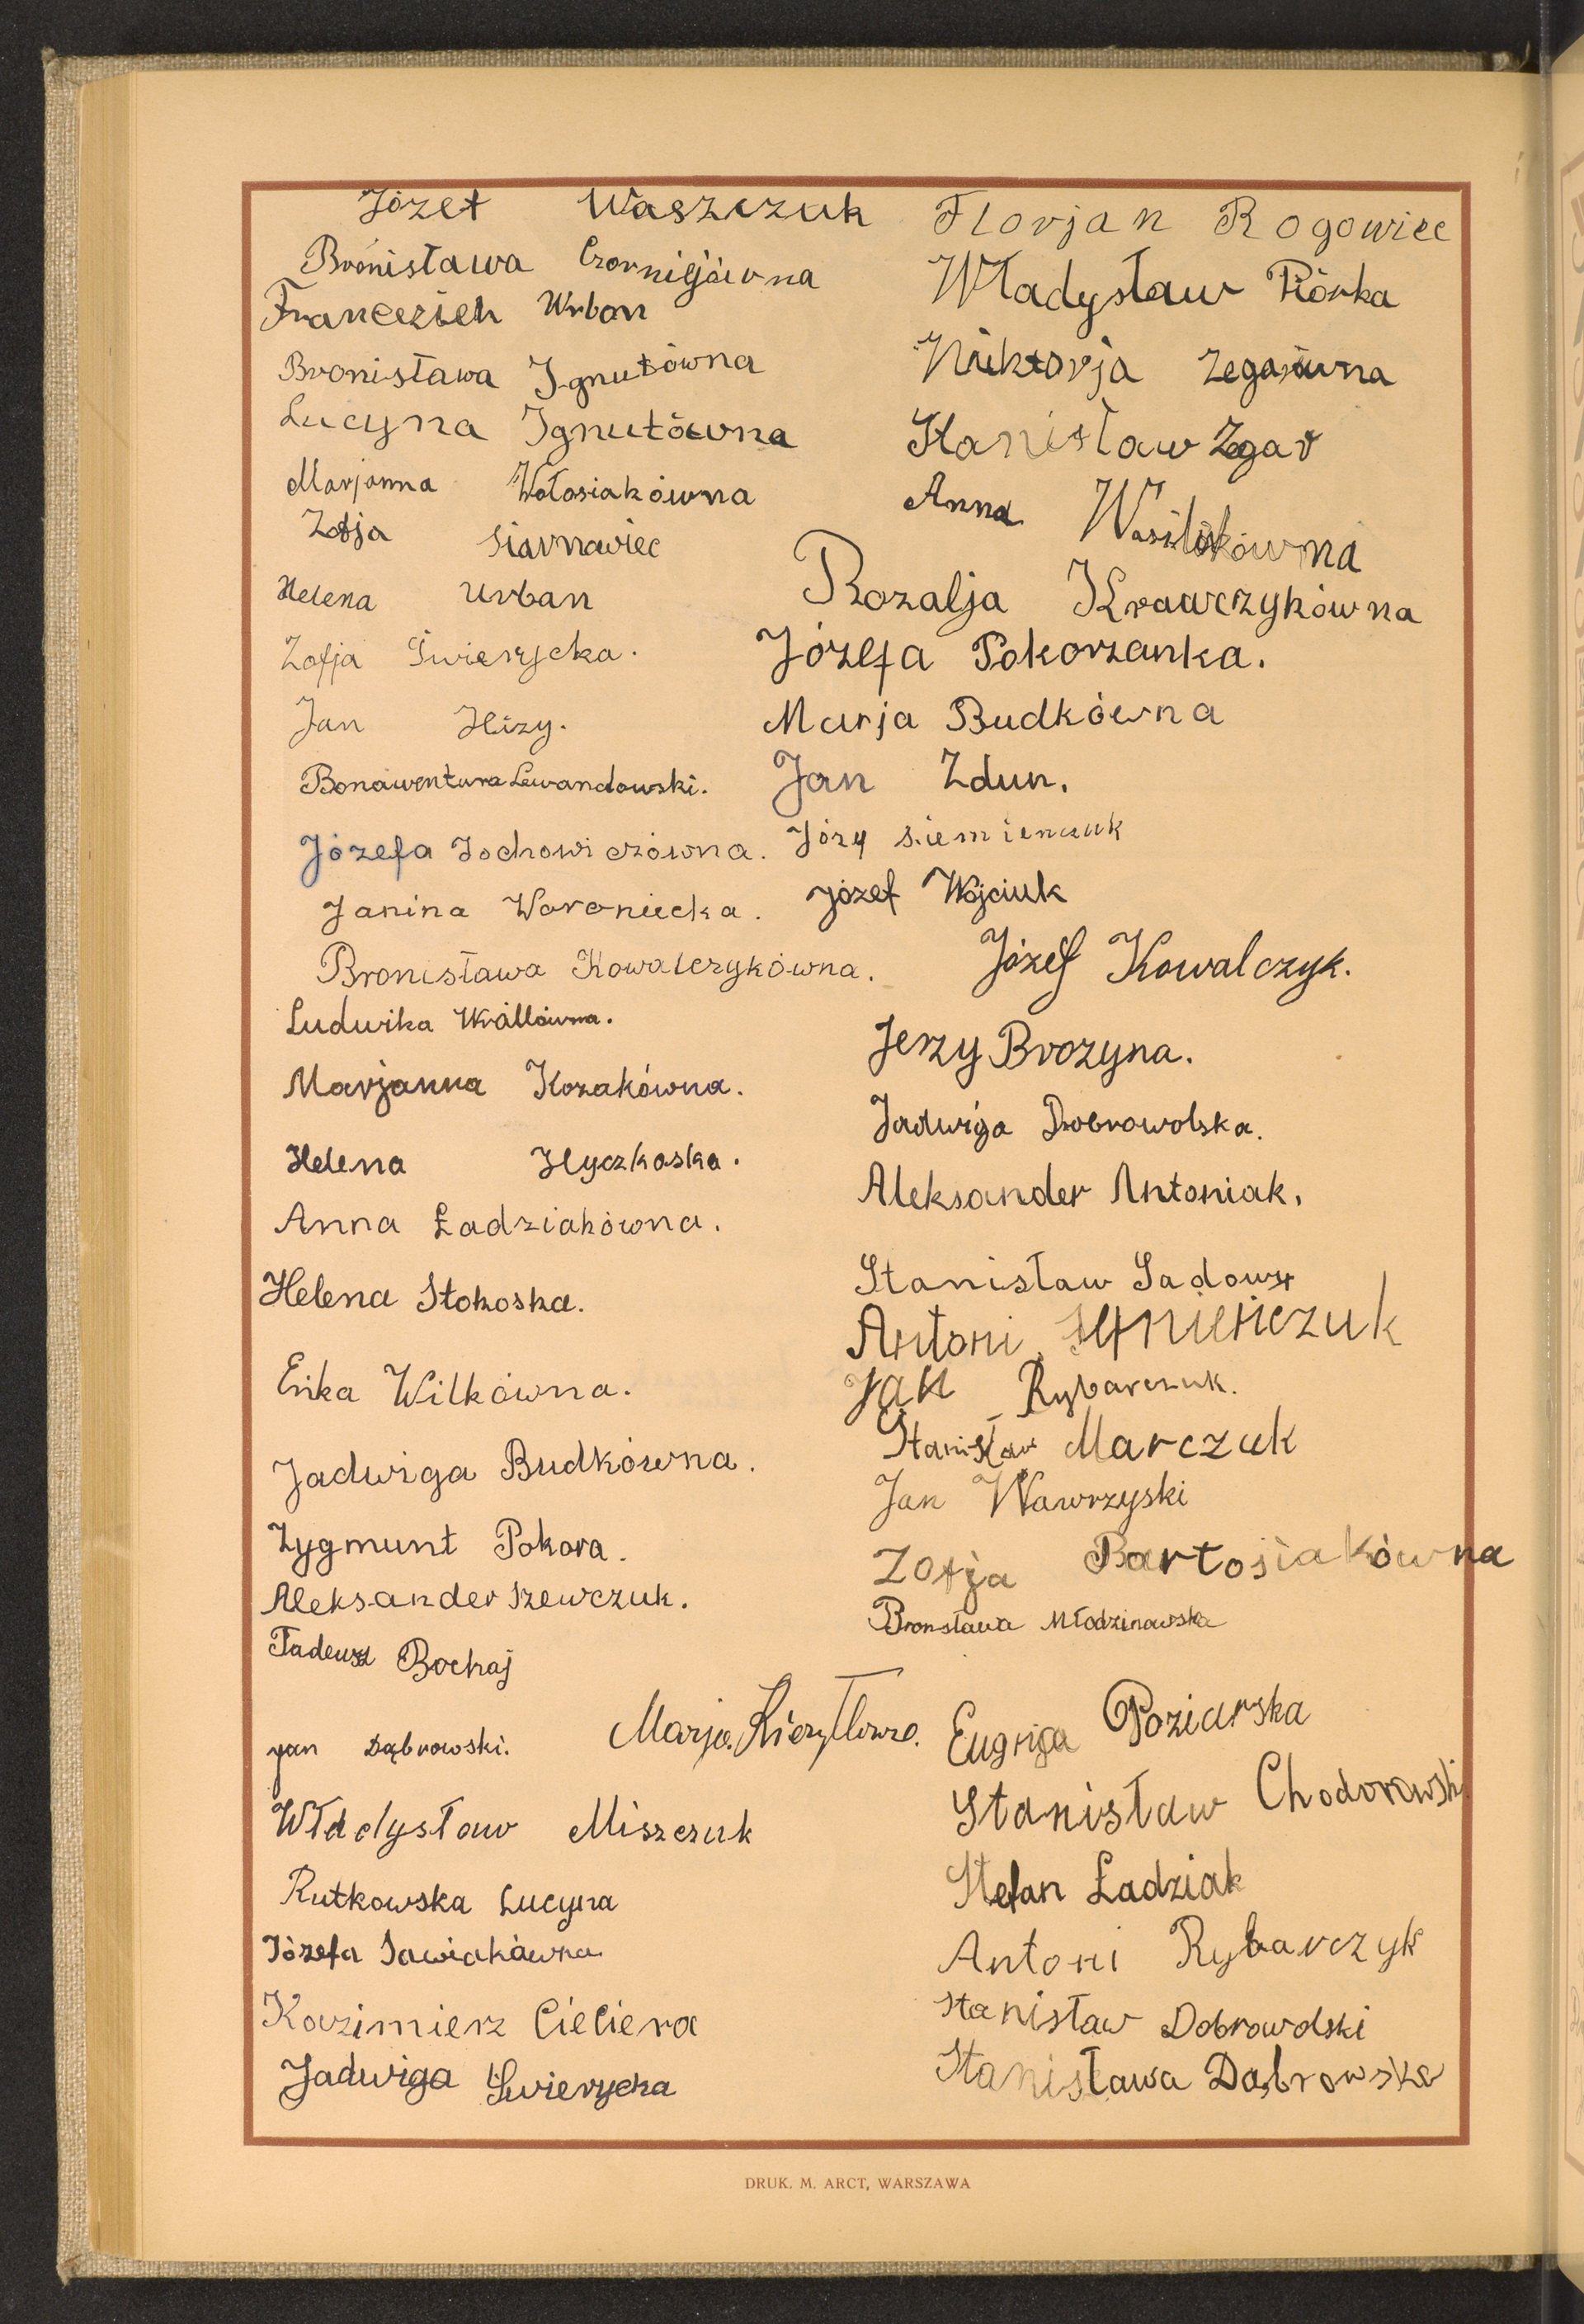 Józef Waszczuk
Bronisława Czornijówna
Franceziek Urban
Bronisława Ignutówna
Lucyna Ignutówna
Marjanna Wołosiakówna
Zofja Siarnawiec
Helena Urban
Zofja Świerzycka.
Jan Hizy.
Bonawentura Lewandowski.
Józefa Jochowiczówna.
Janina Woroniecka.
Bronisława Kowalczykówna.
Ludwika Królówna.
Marjanna Kozakówna.
Helena Hyczkoska.
Anna Ładziakówna.
Helena Stokoska.
Erika Wilkówna.
Jadwiga Budkówna.
Zygmunt Pokora.
Aleksander Szewczuk.
Tadeusz Bochaj
Jan Dąbrowski.
Władysław Miszczuk
Rutkowska Lucyna
Józefa Sawiakówna
Kazimierz Cieciera
Jadwiga Świerycka
Marja
Florjan Rogowiec
Władysław Piórka
Wiktorja Zegarówna
Stanisław Zegar
Anna Wasilukówna
Rozalja Krawczykówna
Józefa Pokorzanka.
Marja Budkówna
Jan Zdun.
Józy Siemienczuk
Józef Wójciuk
Józef Kowalczyk.
Jerzy Brozyna.
Jadwiga Dobrowolska.
Aleksander Antoniak.
Stanisław Sadowy
Antoni
Jan Rybarczuk.
Stanisław Marczuk
Jan Wawrzyski
Zofja Bartosiakówna
Bronsława Młodzinowska
Eugnja Poziarska
Stanisław Chodorowski
Stefan Ładziak
Antoni Rybarczyk
Stanisław Dobrowolski
Stanisława Dąbrowska
DRUK. M. ARCT, WARSZAWA